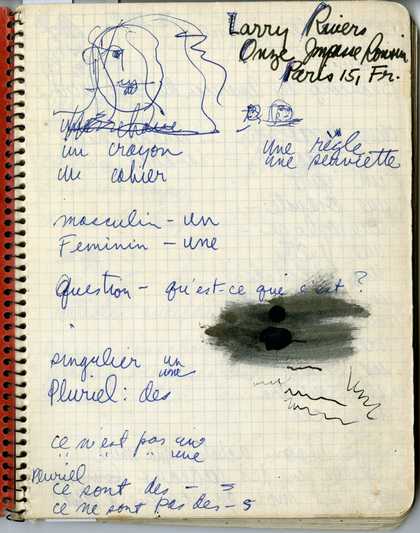 Larry Rivers
Onze Impasse Ronsin
Paris 15, Fr.
un crayon
un cahier
une règle
une serviette
masculin - un
Feminin - une
Question - qu'est-ce que c'est ?
singulier un
une
Pluriel: des
ce n'est pas un
" " " une
Pluriel
ce sont des - s
ce ne sont pas des - s